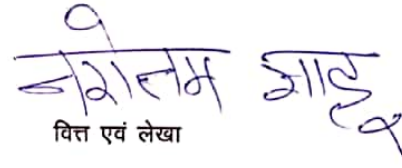 नरोत्तम साहू
वित्त एवं लेखा